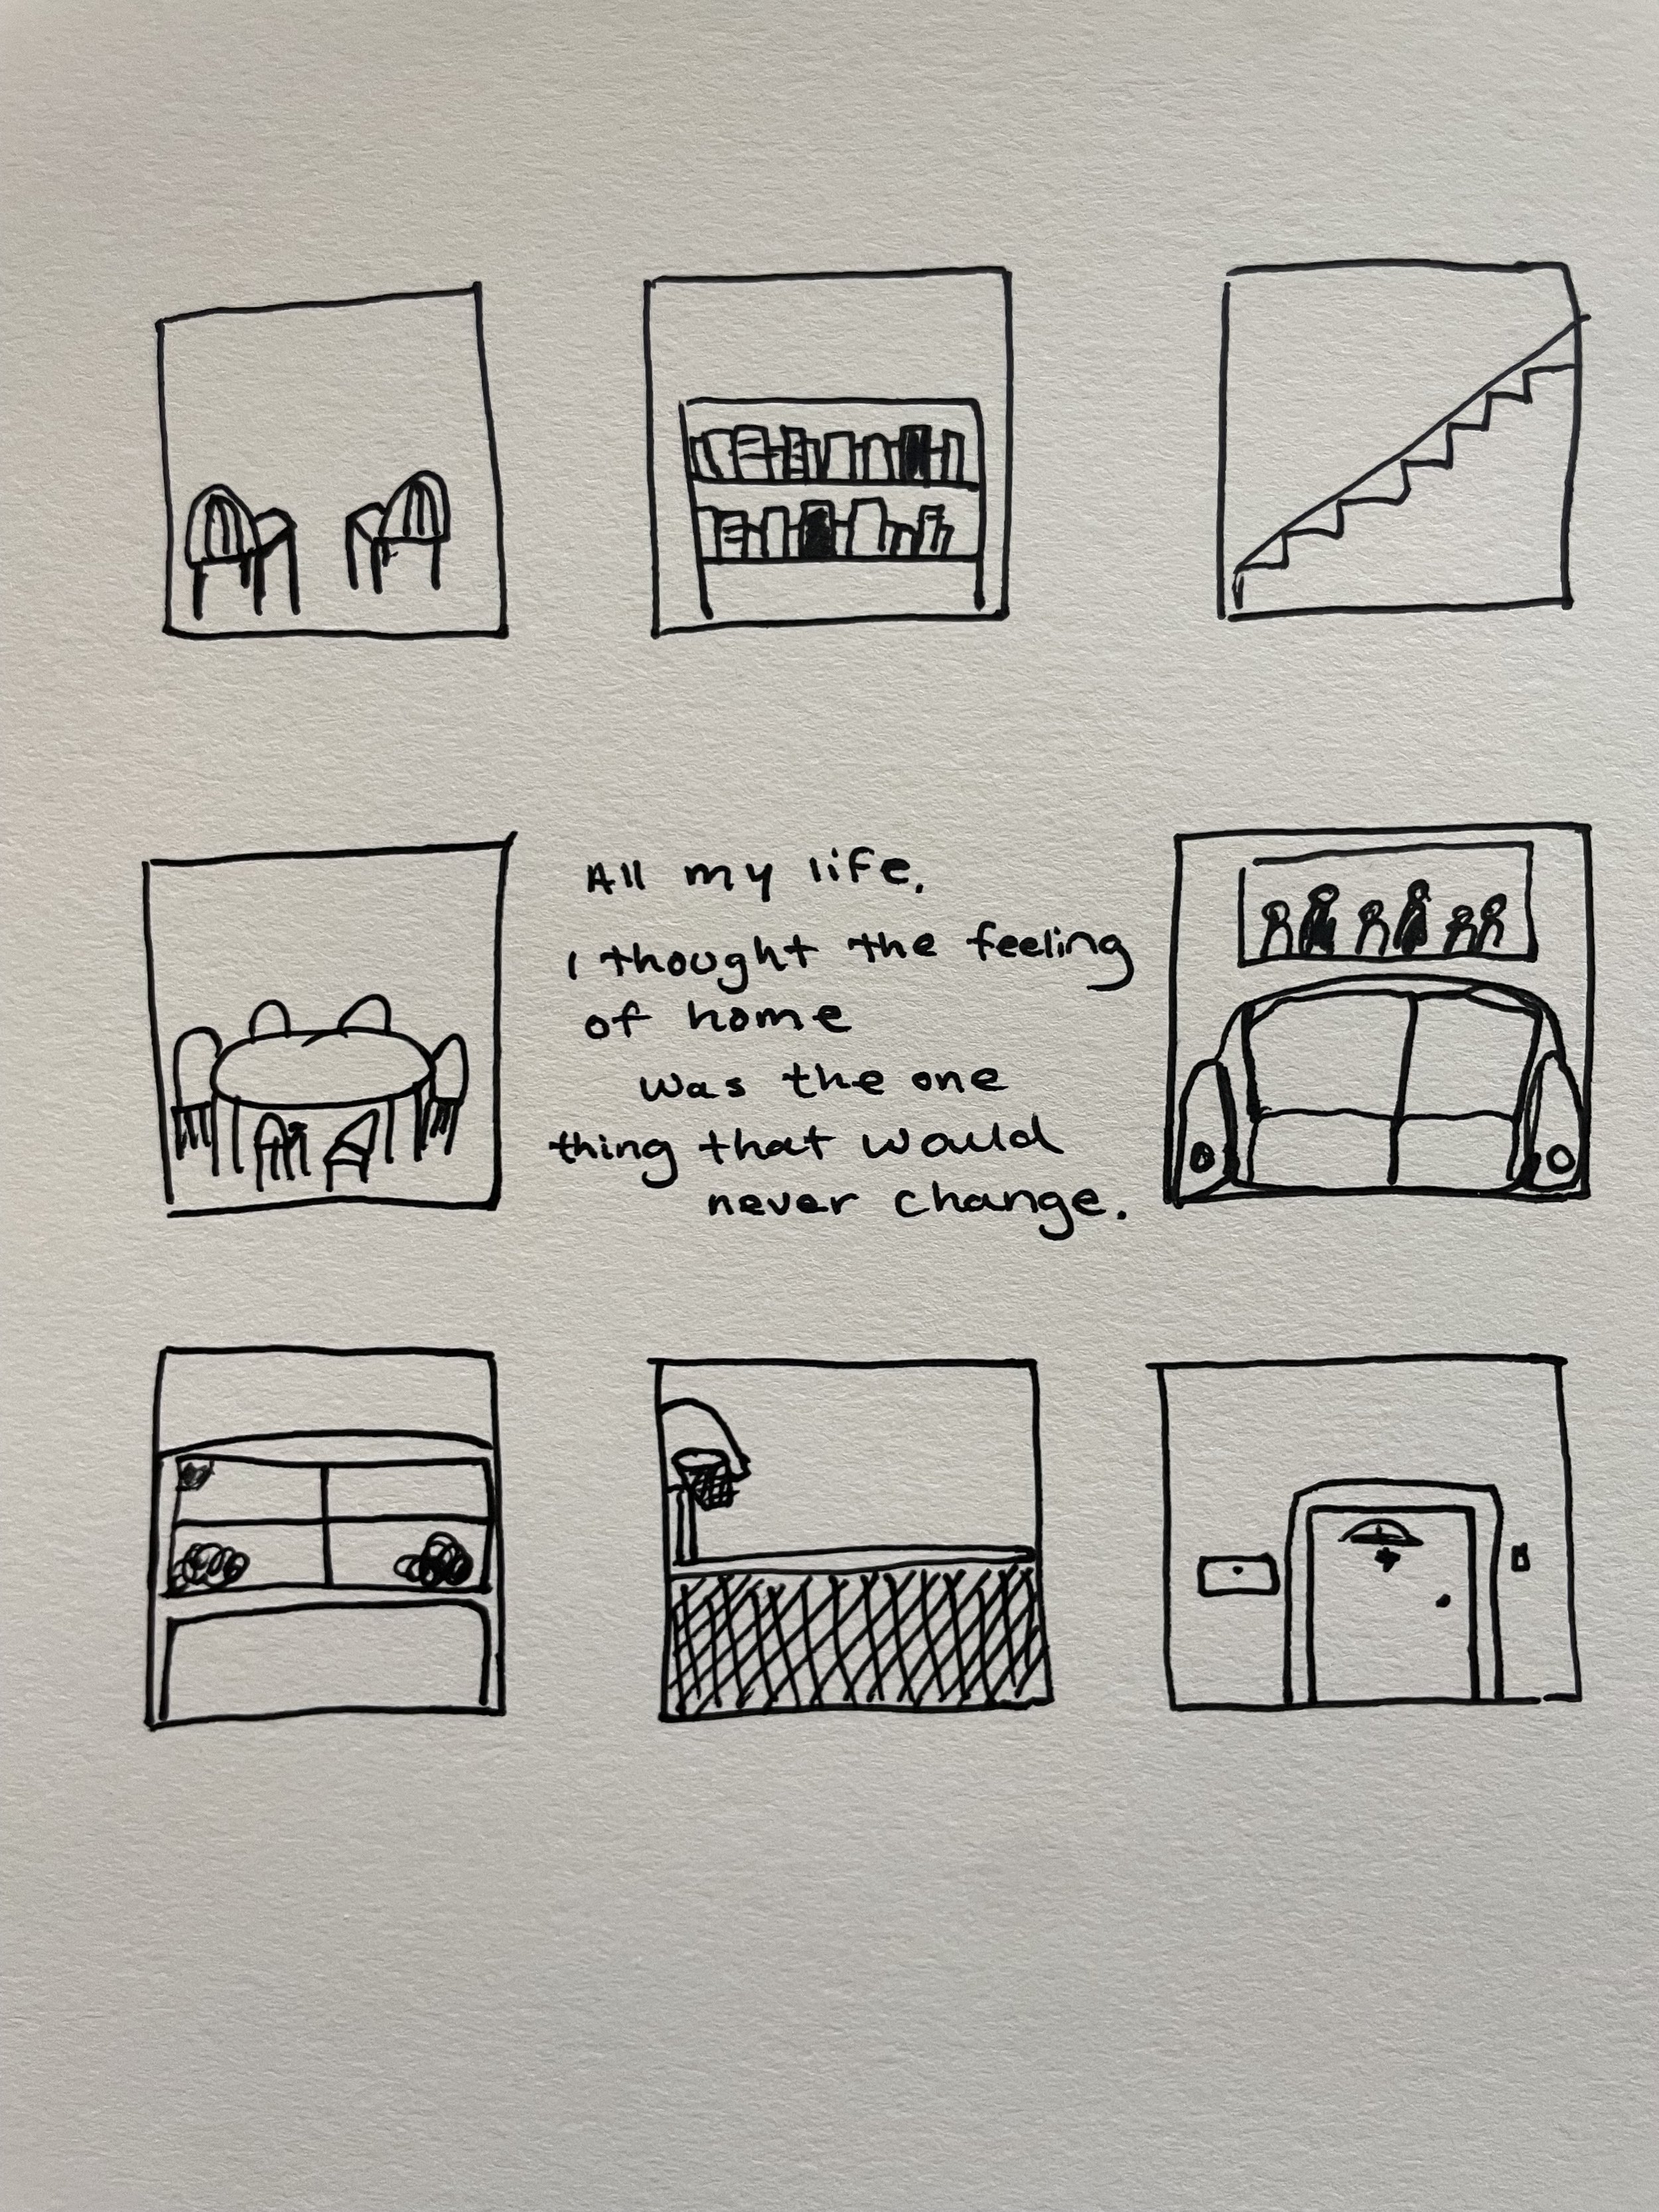 All my life,
I thought the feeling
of home
was the one
thing that would
never change.